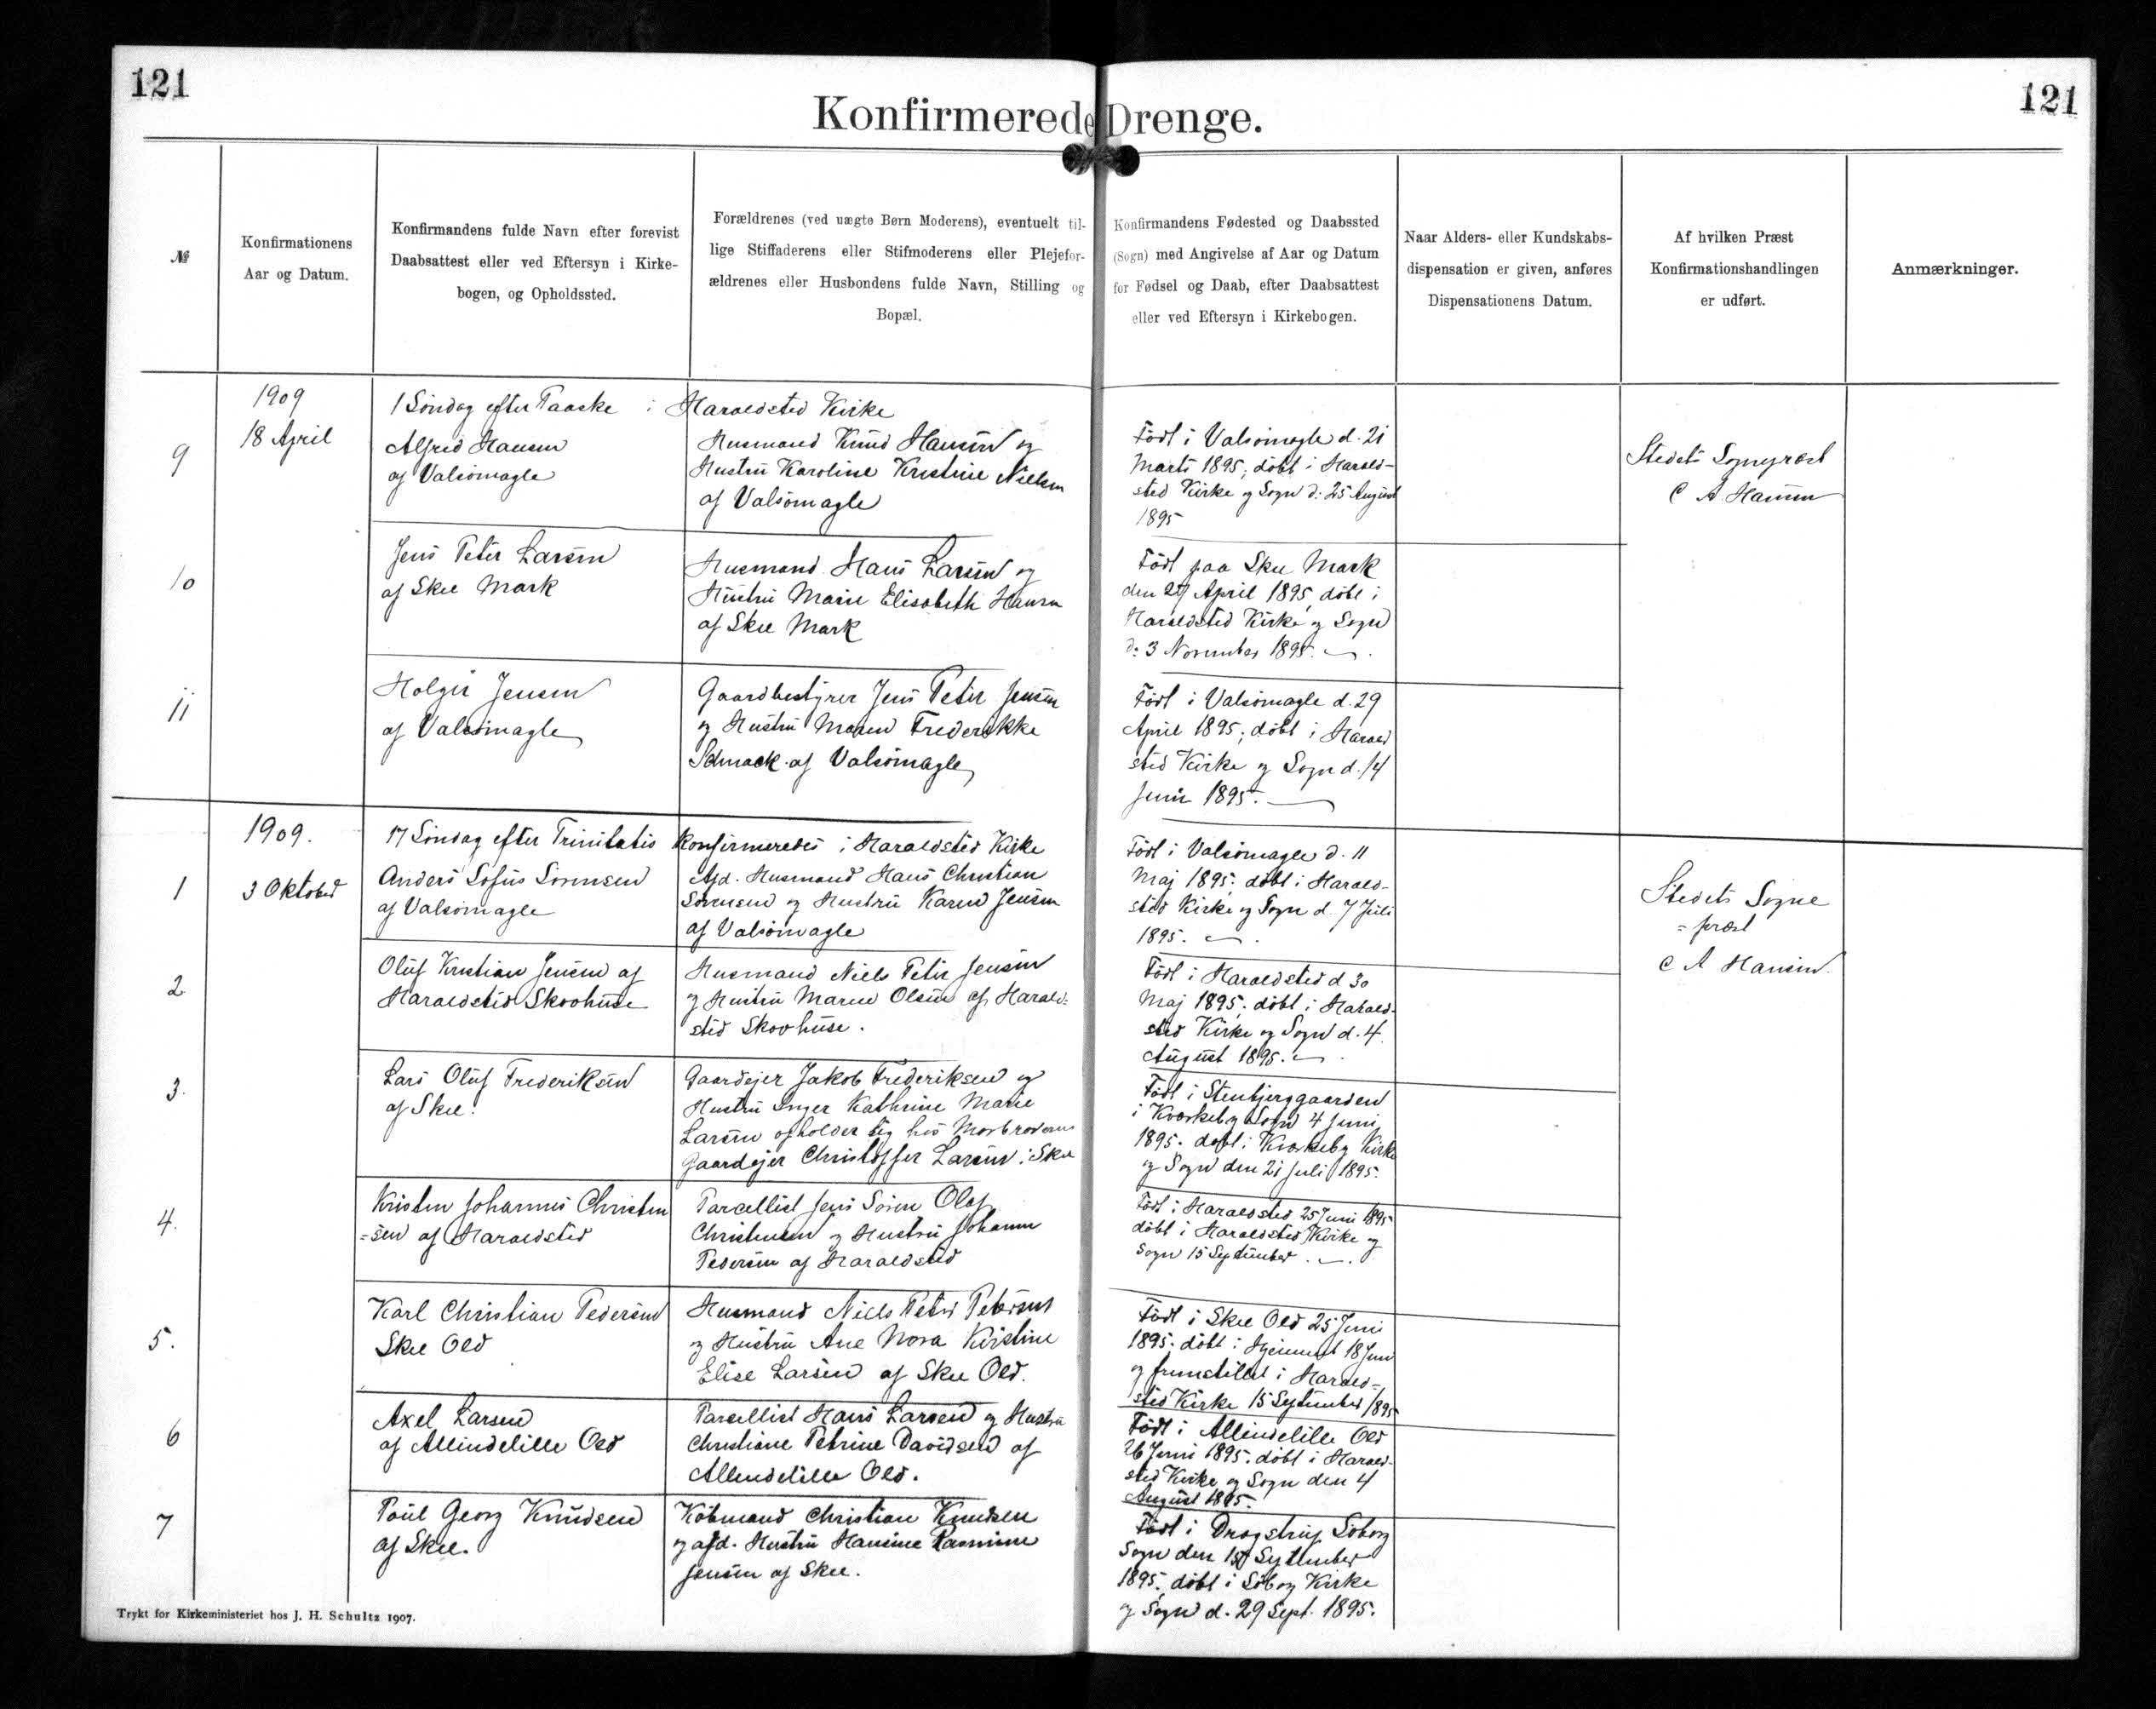 121
121
Konfirmerede Drenge.
№
Konfirmationens
Aar og Datum.
Konfirmandens fulde Navn efter forevist
Daabsattest eller ved Eftersyn i Kirke-
bogen, og Opholdssted.
Forældrenes (ved uægte Børn Moderens), eventuelt til-
lige Stiffaderens eller Stifmoderens eller Plejefor-
ældrenes eller Husbondens fulde Navn, Stilling og
Bopæl.
Konfirmandens Fødested og Daabssted
(Sogn) med Angivelse af Aar og Datum
for Fødsel og Daab, efter Daabsattest
eller ved Eftersyn i Kirkebogen.
Naar Alders- eller Kundskabs-
dispensation er given, anføres
Dispensationens Datum.
Af hvilken Præst
Konfirmationshandlingen
er udført.
Anmærkninger.
1909
1 Søndag efter Paaske i Haraldsted Kirke
9
18 April
Alfred Hansen
af Valsømagle
Husmand Knud Hansen og
Hustru Karoline Kristine Nielsen
af Valsømagle
Født i Valsømagle d. 21
Marts 1895, døbt i Harald-
sted Kirke og Sogn d: 25 August
1895
Stedets Sognepræst
C A Hansen
10
Jens Peter Larsen
af Skee Mark
Husmand Hans Larsen og
Hustru Marie Elisabeth Hansen
af Skee Mark
Født paa Skee Mark
den 27 April 1895, døbt i
Haraldsted Kirke og Sogn
d: 3 November 1895.
11
Holger Jensen
af Valsømagle
Gaardbestyrer Jens Peter Jensen
og Hustru Maren Frederikke
Schmock af Valsømagle
Født i Valsømagle d. 29
April 1895; døbt i Harald
sted Kirke og Sogn d. 14
Juni 1895.
1909.
17 Søndag efter Trinitatis Konfirmeredes i Haraldsted Kirke
1
3 Oktober
Anders Sofus Sørensen
af Valsømagle
Afd. Husmand Hans Christian
Sørensen og Hustru Karen Jensen
af Valsømagle
Født i Valsømagle d. 11
Maj 1895; døbt i Harald-
sted Kirke og Sogn d. 7 Juli
1895.
Stedets Sogne
=præst
C A Hansen.
2
Oluf Kristian Jensen af
Haraldsted Skovhuse
Husmand Niels Peter Jensen
og Hustru Maren Olsen af Harald=
sted Skovhuse.
Født i Haraldsted d 30
Maj 1895; døbt i Harald-
sted Kirke og Sogn d. 4.
August 1895.
3.
Lars Oluf Frederiksen
af Skee.
Gaardejer Jakob Frederiksen og
Hustru Inger Kathrine Marie
Larsen opholder sig hos Morbroderen
Gaardejer Christoffer Larsen i Skee
Født i Stenbjerggaarden
i Kværkeby Sogn 4 Juni
1895. døbt i Kværkeby Kirke
og Sogn den 21 Juli 1895.
4.
Kristen Johannes Christen
=sen af Haraldsted
Parcellist Jens Søren Olaf
Christensen og Hustru Johanne
Pedersen af Haraldsted
Født i Haraldsted 25 Juni 1895
døbt i Haraldsted Kirke og
Sogn 15 September.
5.
Karl Christian Pedersen
Skee Old
Husmand Niels Peter Petersen
og Hustru Ane Nora Kirstine
Elise Larsen af Skee Old.
Født i Skee Old 25 Juni
1895. døbt i Hjemmet 18 Juni
og fremstillet i Harald=
sted Kirke 15 September 1895
6
Axel Larsen
af Allindelille Old
Parcellist Hans Larsen og Hustru
Christiane Petrine Davidsen af
Allindelille Old.
Født i Allindelille Old
26 Juni 1895. døbt i Harald-
sted Kirke og Sogn den 4
August 1895.
7
Poul Georg Knudsen
af Skee.
Købmand Christian Knudsen
og afd. Hustru Hansine Rasmine
Jensen af Skee.
Født i Dragstrup Søborg
Sogn den 15 September
1895. døbt i Søborg Kirke
og Sogn d. 29 Sept. 1895.
Trykt for Kirkeministeriet hos J. H. Schultz 1907.